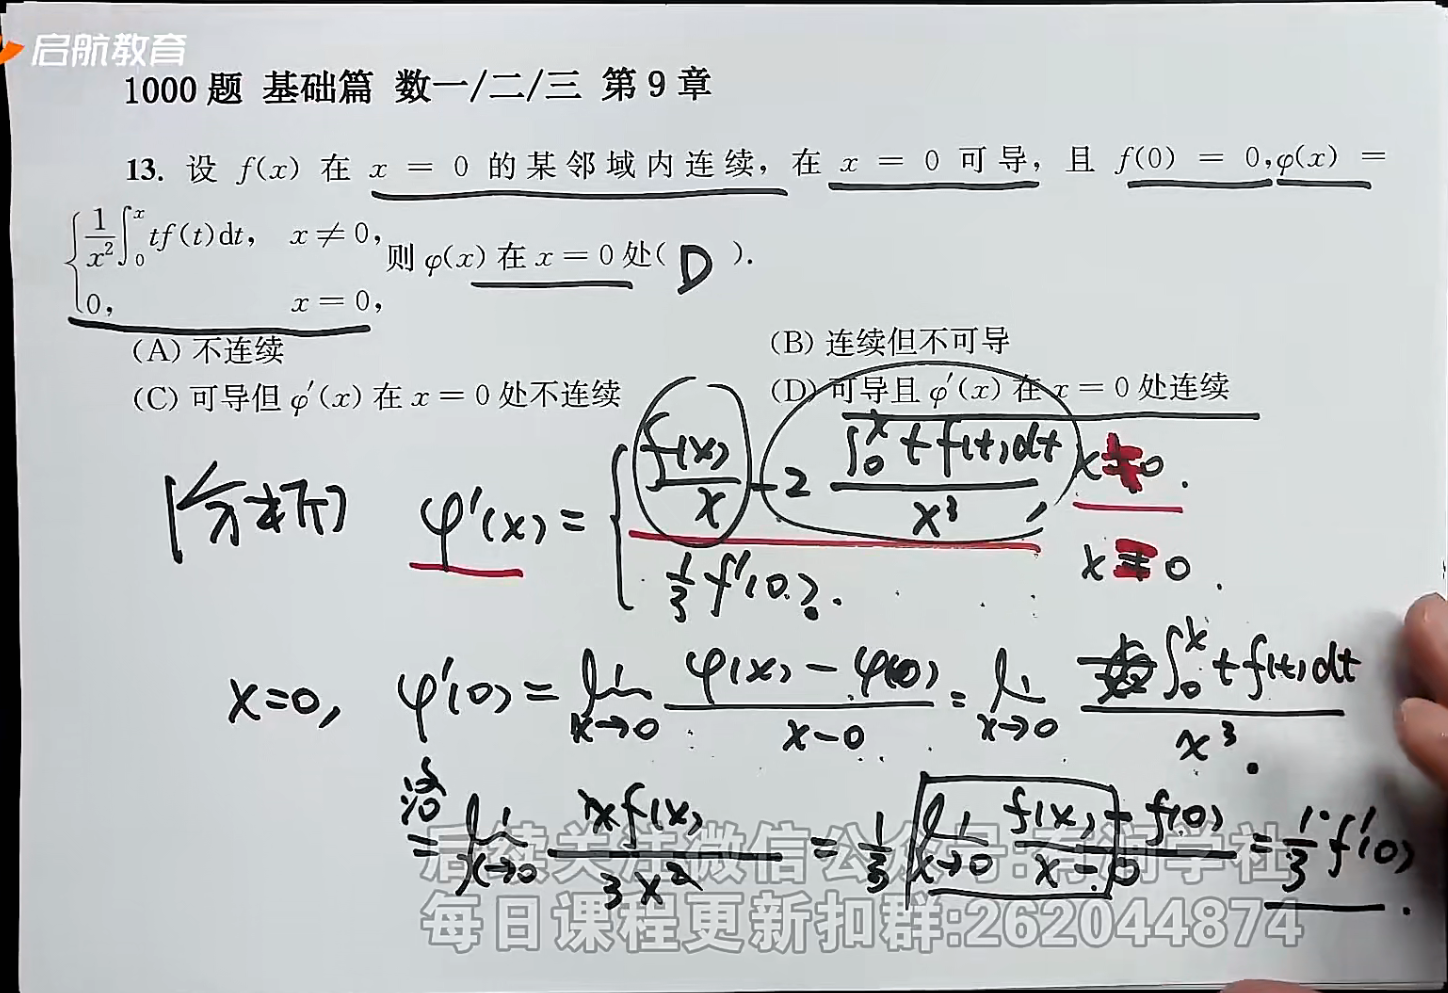 启航教育
1000题 基础篇 数一/二/三 第9章
13. 设 f(x) 在 x = 0 的某邻域内连续, 在 x = 0 可导, 且 f(0) = 0, φ(x) =
{ 1/x² ∫₀ˣ tf(t)dt, x ≠ 0,
0, x = 0,
则 φ(x) 在 x = 0 处( D ).
(A) 不连续 (B) 连续但不可导
(C) 可导但 φ′(x) 在 x = 0 处不连续 (D) 可导且 φ′(x) 在 x = 0 处连续
[分析] φ′(x) = { f(x)/x - 2 ∫₀ˣ t f(t)dt / x³, x ≠ 0.
1/3 f′(0). x = 0.
x=0, φ′(0) = lim x→0 (φ(x) - φ(0))/(x-0) = lim x→0 ∫₀ˣ t f(t)dt / x³.
洛 % = lim x→0 x f(x) / 3x² = 1/3 lim x→0 (f(x) - f(0))/(x-0) = 1/3 f′(0).
后续关注微信公众号:有河学社
每日课程更新扣群:262044874